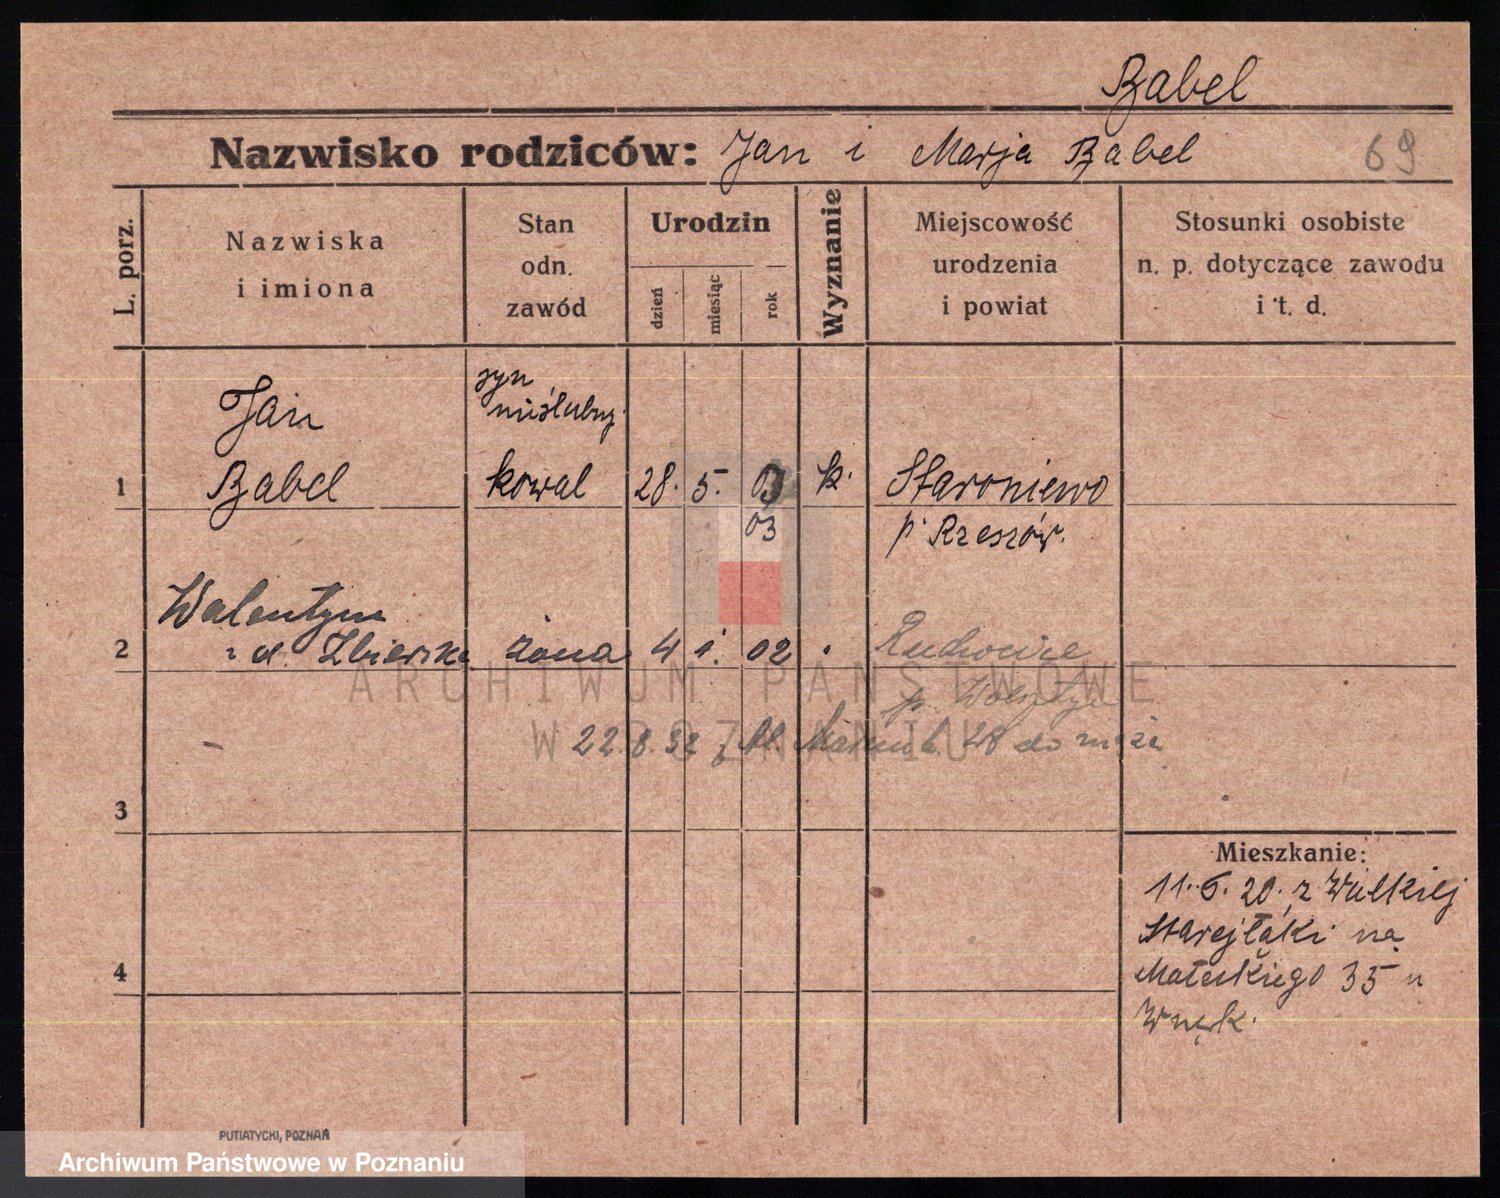 Babel
Nazwisko rodziców: Jan i Marja Babel
69
L. porz.
Nazwiska
i imiona
Stan
odn.
zawód
Urodzin
dzień
miesiąc
rok
Wyznanie
Miejscowość
urodzenia
i powiat
Stosunki osobiste
n. p. dotyczące zawodu
i t. d.
syn
nieślubny
Jan
1 Babel kowal 28. 5. 03 k. Staroniewo
03 p. Rzeszów.
Walentyna
2 z d. Zbierska żona 4 1. 02 Ruchocice
p. Wolsztyn
22.8.32 28 do męża
3
Mieszkanie:
11. 6. 20. z Wielkiej
Starejłąki na
Małeckiego 35 u
4
PUTIATYCKI, POZNAŃ
ARCHIWUM PAŃSTWOWE
W POZNANIU
Archiwum Państwowe w Poznaniu